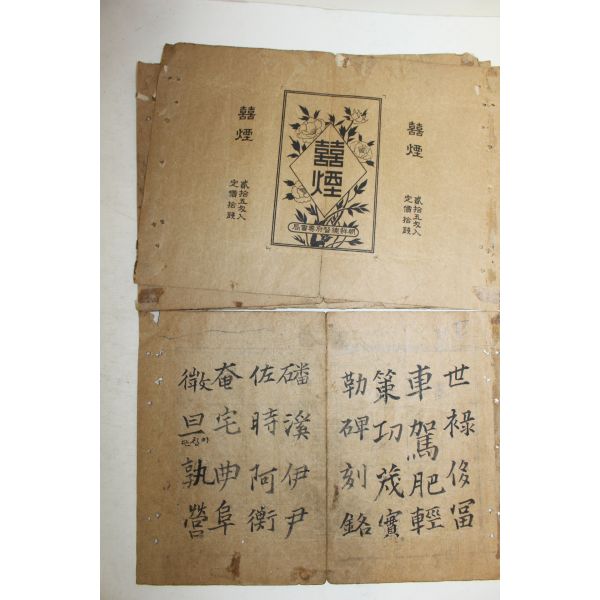 囍煙
貳拾五匁入
定價拾錢
囍煙
朝鮮總督府專賣局
囍煙
貳拾五匁入
定價拾錢
世祿侈冨
車駕肥輕
策功茂實
勒碑刻銘
磻溪伊尹
佐時阿衡
奄宅曲阜
微旦孰營